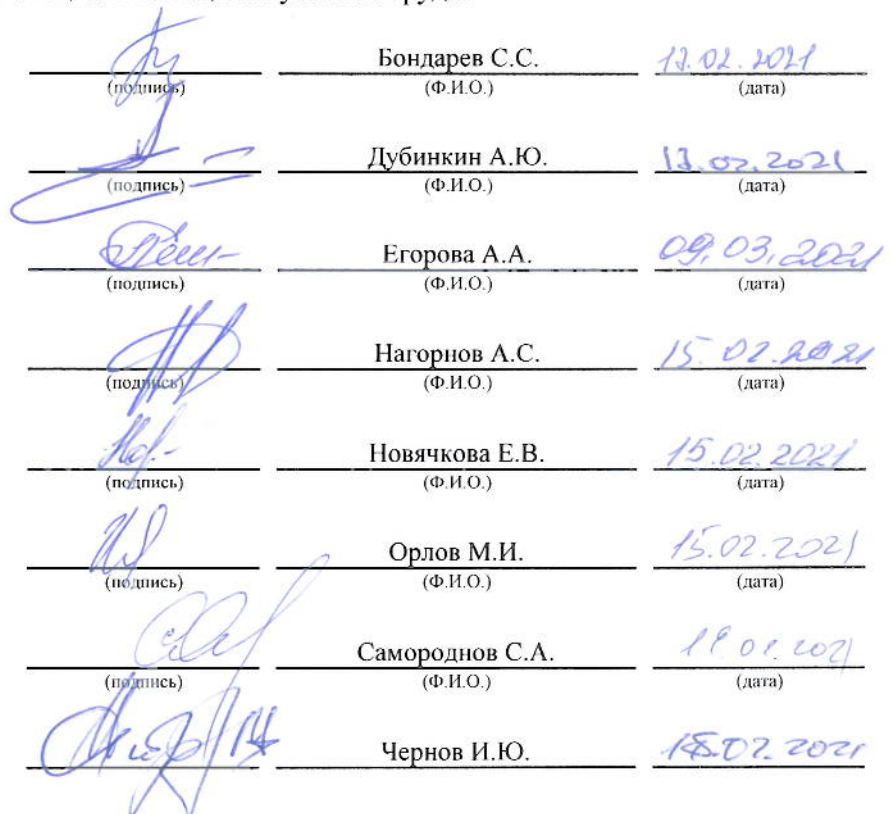 Бондарев С.С. 
(подпись) (Ф.И.О.) (дата)
Дубинкин А.Ю.
(подпись) (Ф.И.О.) (дата)
Егорова А.А. 09.03.2021
(подпись) (Ф.И.О.) (дата)
Нагорнов А.С. 15.02.2021
(подпись) (Ф.И.О.) (дата)
Новячкова Е.В. 15.02.2021
(подпись) (Ф.И.О.) (дата)
Орлов М.И. 15.02.2021
(подпись) (Ф.И.О.) (дата)
Самороднов С.А.
(подпись) (Ф.И.О.) (дата)
Чернов И.Ю.